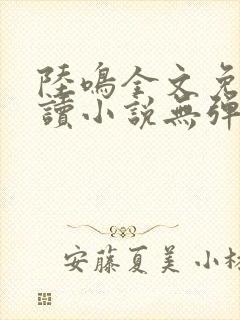 陸鳴全文免
讀小説無彈
安藤夏美 小林